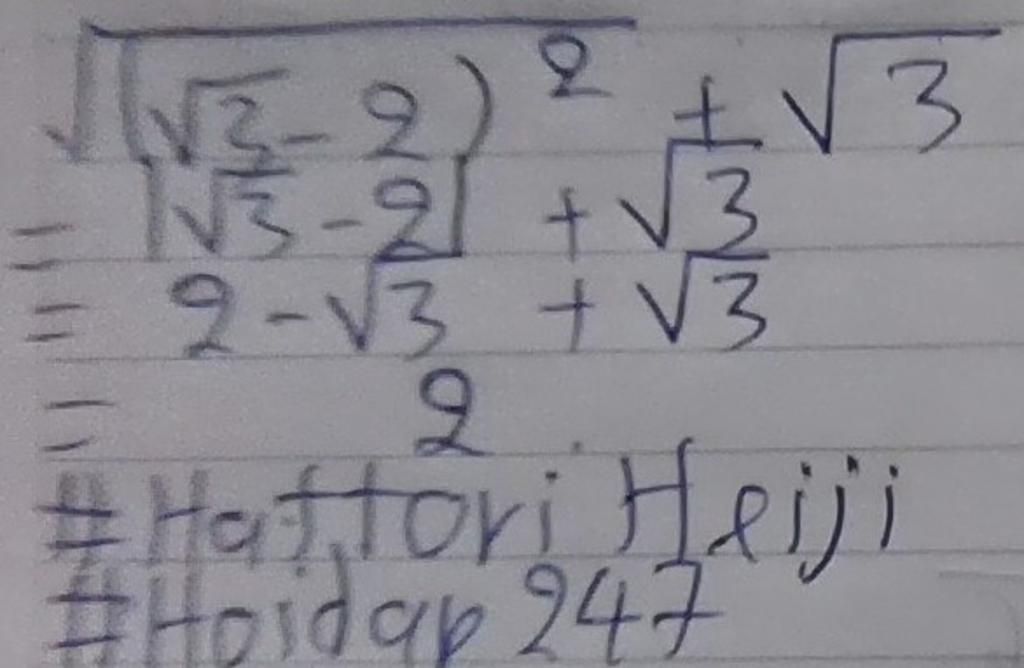 √(√3 - 2)² + √3
= |√3 - 2| + √3
= 2 - √3 + √3
= 2
#Hattori Heiji
#Hoidap247